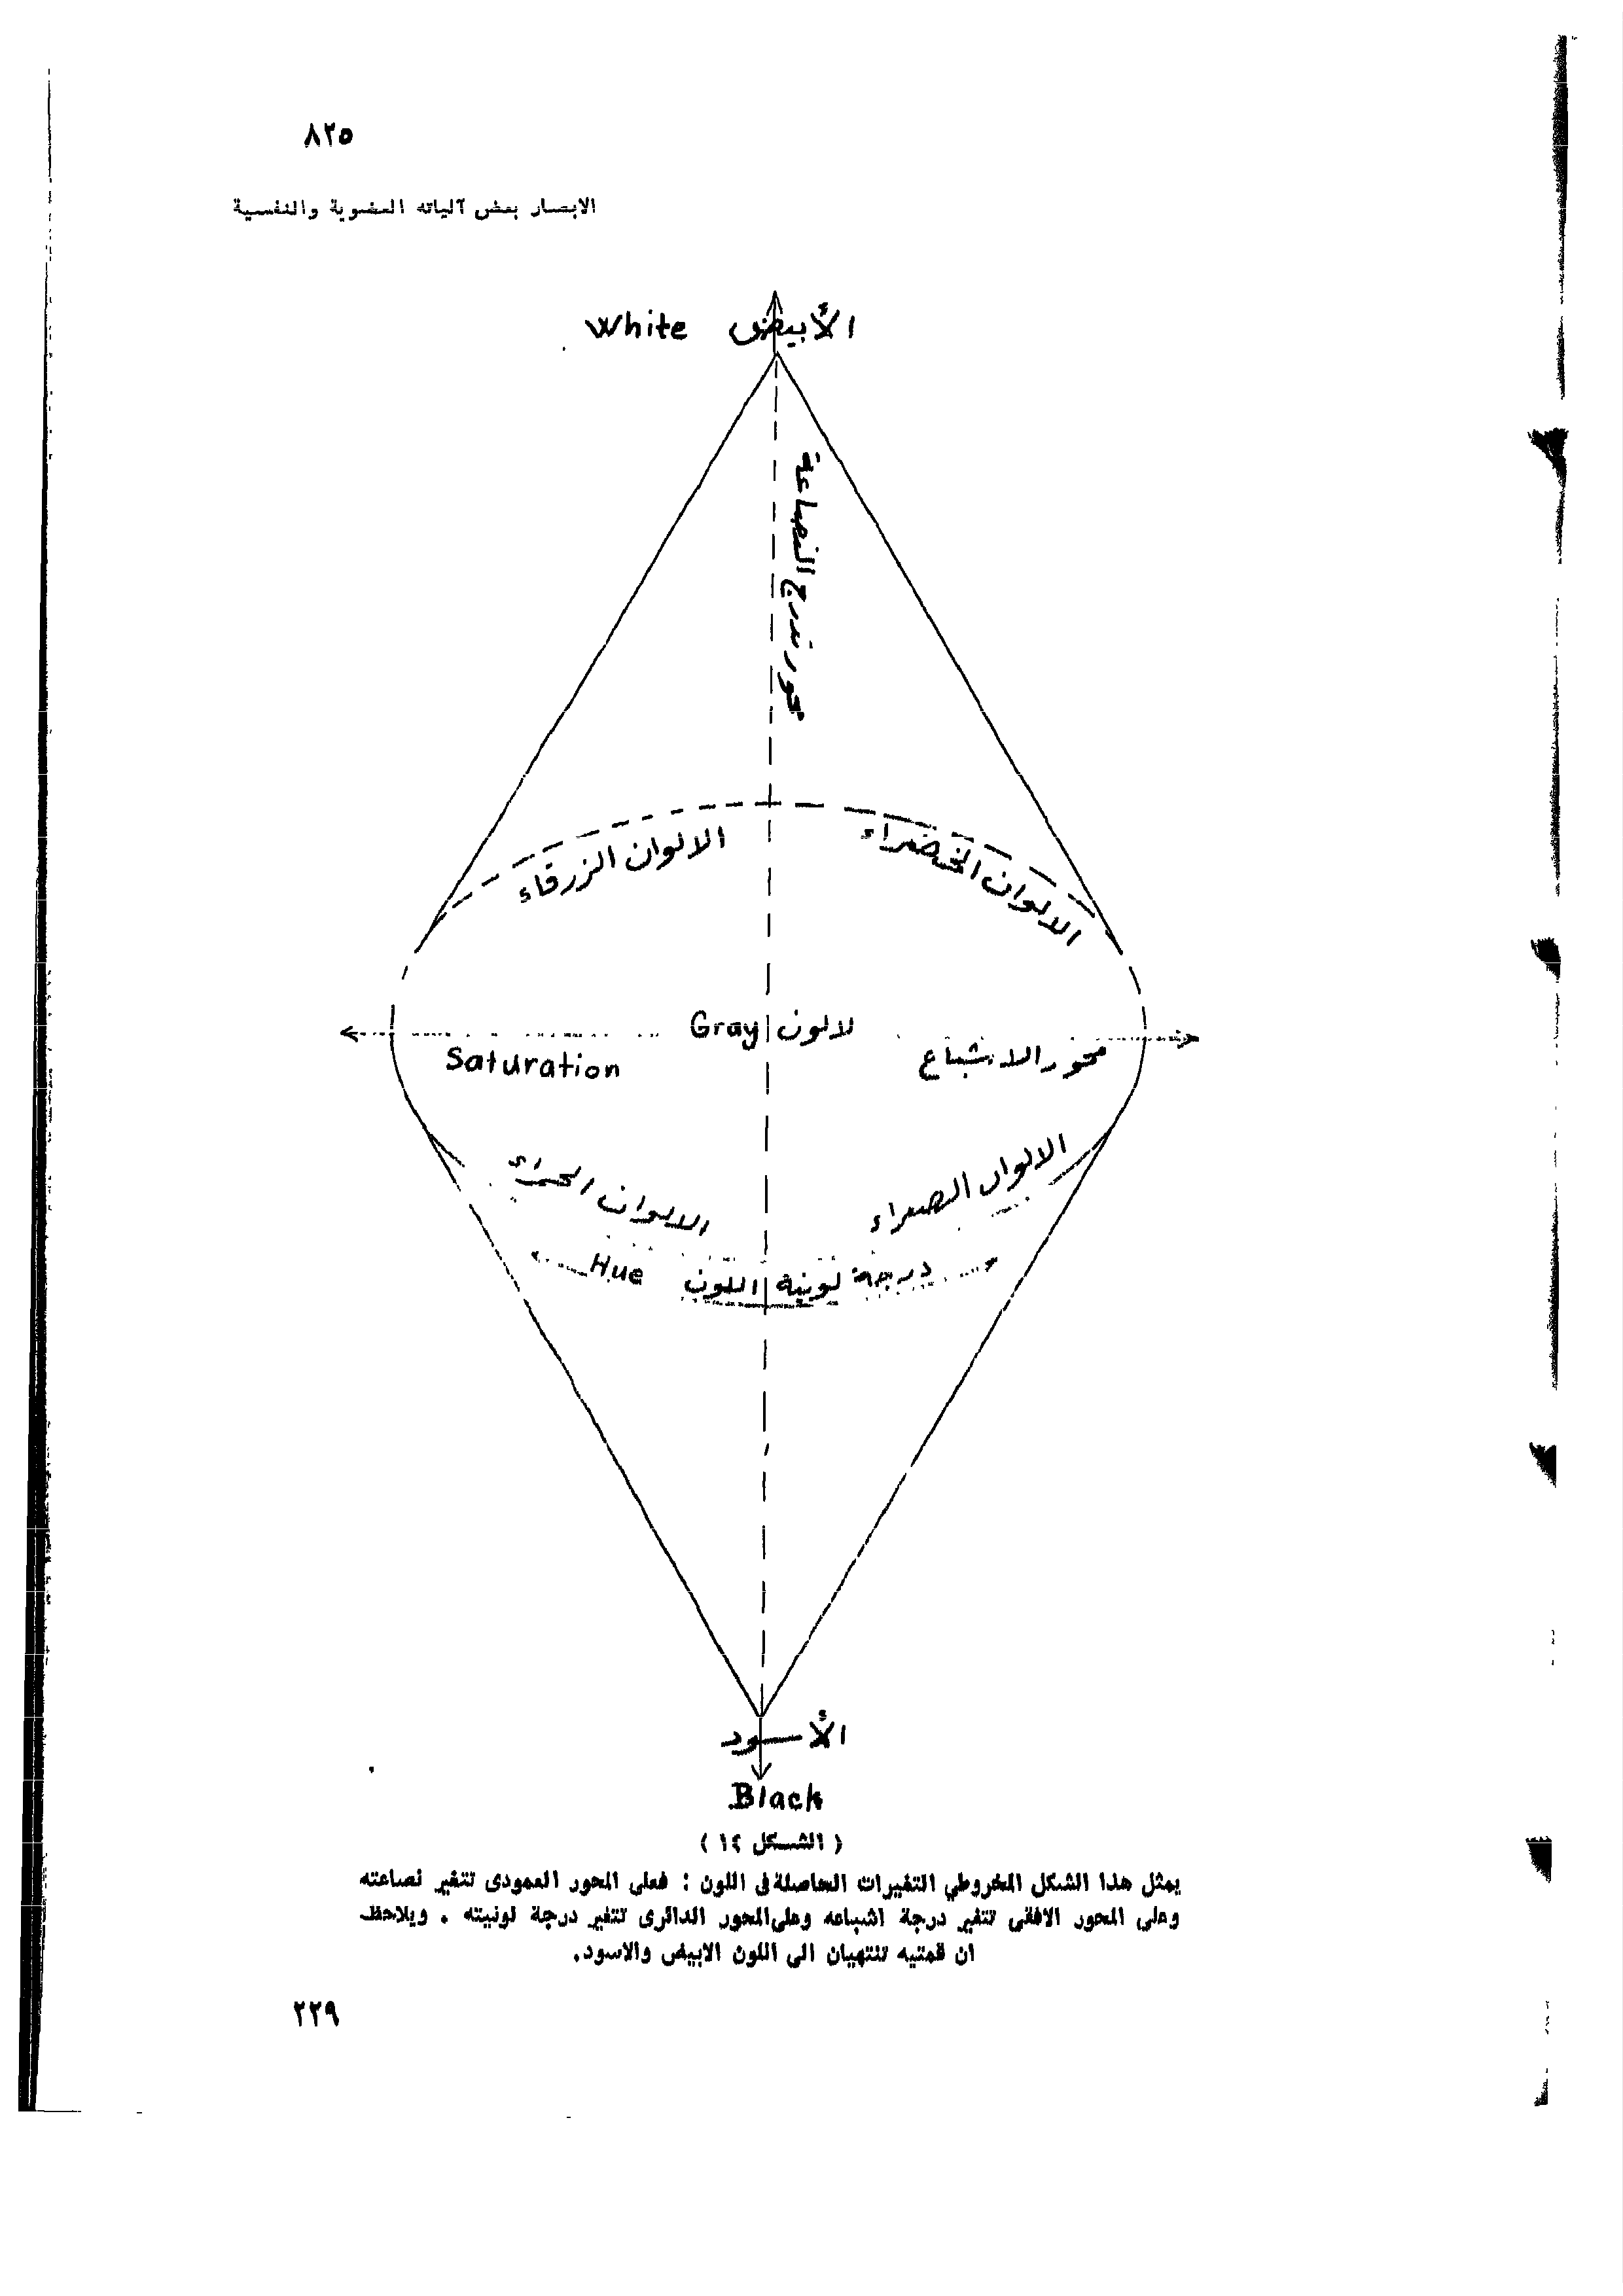 ٨٢٥
الابصار بعض آلياته العضوية والنفسية
White الأبيض
محور تدرج النصاعة
الالوان الزرقاء
الالوان الخضراء
Gray لالون
Saturation
محور الاشباع
الالوان الحمراء
الالوان الصفراء
Hue درجة لونية اللون
الأسود
Black
( الشكل ١٤ )
يمثل هذا الشكل المخروطي التغيرات الحاصلة في اللون : فعلى المحور العمودى تتغير نصاعته
وعلى المحور الافقى تتغير درجة اشباعه وعلى المحور الدائرى تتغير درجة لونيته . ويلاحظ
ان قمتيه تنتهيان الى اللون الابيض والاسود.
٢٢٩